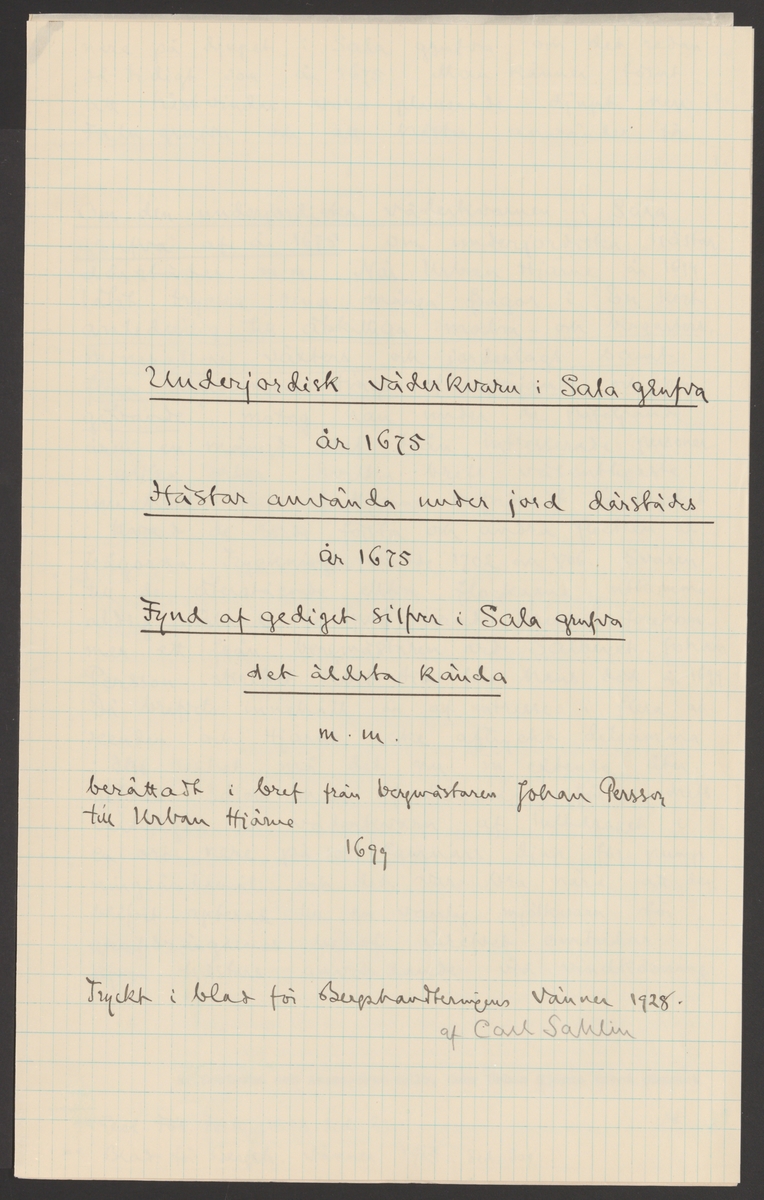 Underjordisk väderkvarn i Sala grufva
år 1675
Hästar använda under jord därstädes
år 1675
Fynd af gediget silfver i Sala grufva
det äldsta kända
m. m.
berättadt i bref från bergmästaren Johan Persson
till Urban Hjärne
1699
Tryckt i blad för Bergshandteringens Vänner 1928.
af Carl Sahlin